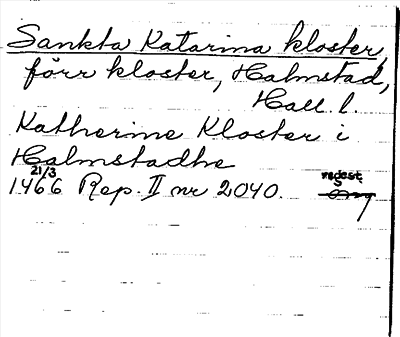 Sankta Katarina kloster,
förr kloster, Halmstad,
Hall. l.
Katherine Kloster i
Halmstadhe
21/3
1466 Rep. II nr 2040.
regest